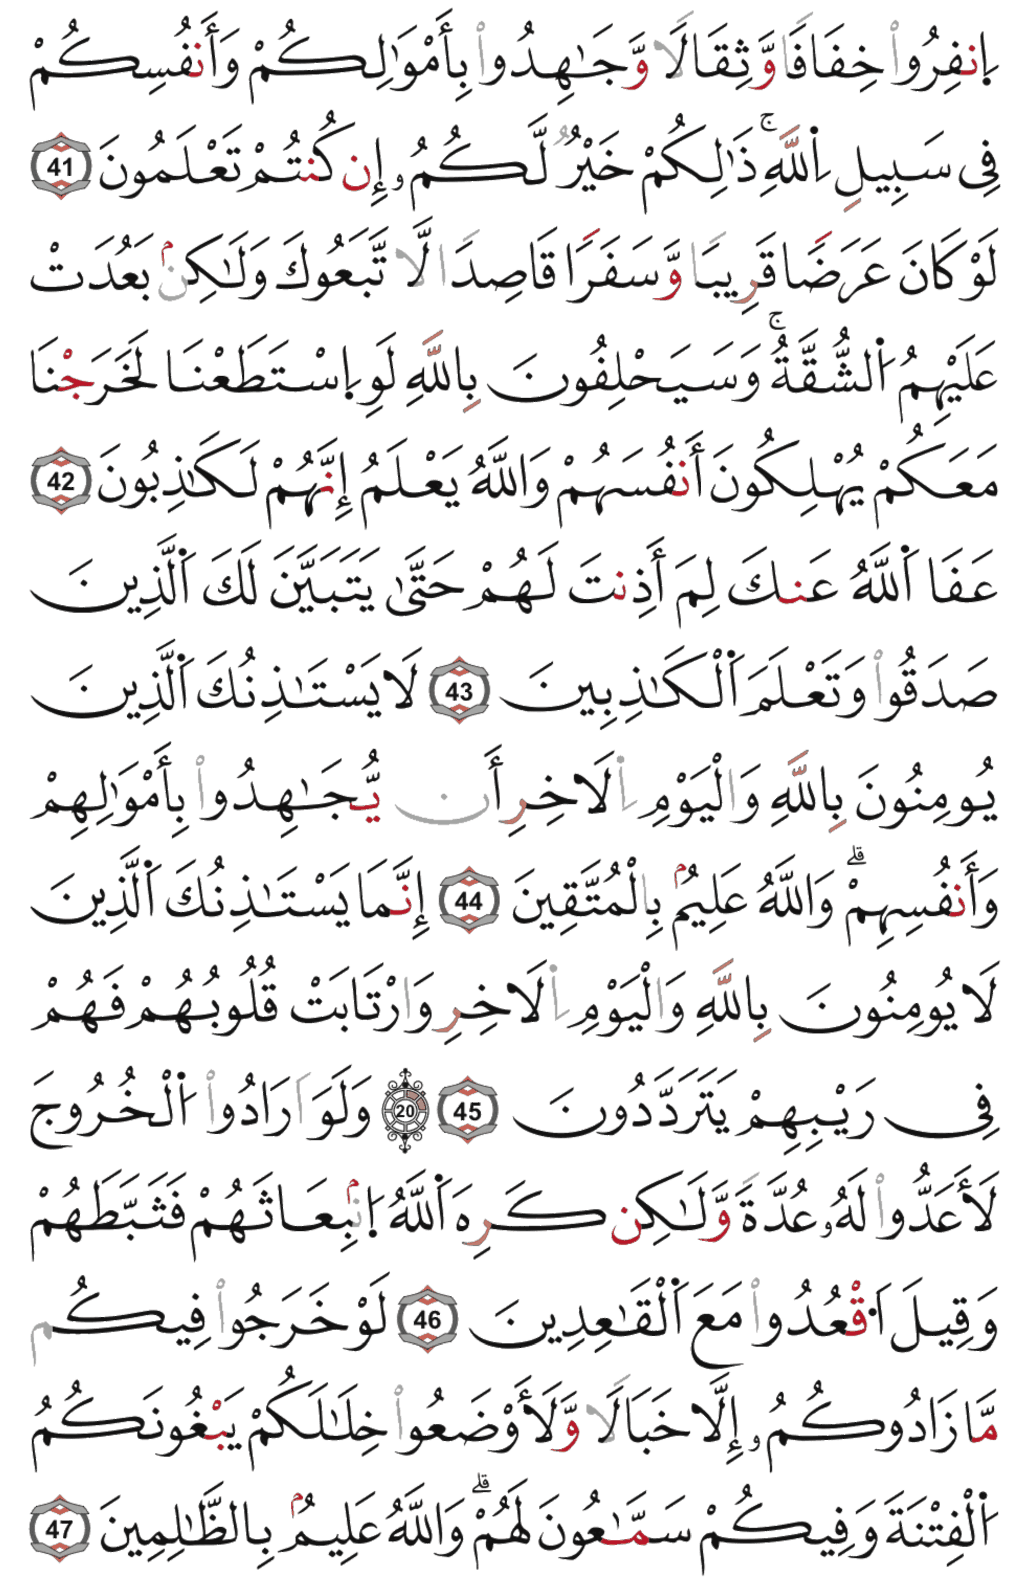 اِنفِرُواْ خِفَافًا وَّثِقَالًا وَّجَٰهِدُواْ بِأَمْوَٰلِكُمْ وَأَنفُسِكُمْ
فِى سَبِيلِ اِ۬للَّهِۚ ذَٰلِكُمْ خَيْرٌ لَّكُمُۥٓ إِن كُنتُمْ تَعْلَمُونَ 41
لَوْ كَانَ عَرَضًا قَرِيبًا وَّسَفَرًا قَاصِدًا لَّا تَّبَعُوكَ وَلَٰكِنۢ بَعُدَتْ
عَلَيْهِمُ اُ۬لشُّقَّةُۚ وَسَيَحْلِفُونَ بِاللَّهِ لَوِ اِسْتَطَعْنَا لَخَرَجْنَا
مَعَكُمْ يُهْلِكُونَ أَنفُسَهُمْ وَاللَّهُ يَعْلَمُ إِنَّهُمْ لَكَٰذِبُونَ 42
عَفَا اَ۬للَّهُ عَنكَ لِمَ أَذِنتَ لَهُمْ حَتَّىٰ يَتَبَيَّنَ لَكَ اَ۬لَّذِينَ
صَدَقُواْ وَتَعْلَمَ اَ۬لْكَٰذِبِينَ 43 لَا يَسْتَٰذِنُكَ اَ۬لَّذِينَ
يُومِنُونَ بِاللَّهِ وَالْيَوْمِ اِ۬لَاخِرِ أَن يُّجَٰهِدُواْ بِأَمْوَٰلِهِمْ
وَأَنفُسِهِمْۗ وَاللَّهُ عَلِيمُۢ بِالْمُتَّقِينَ 44 إِنَّمَا يَسْتَٰذِنُكَ اَ۬لَّذِينَ
لَا يُومِنُونَ بِاللَّهِ وَالْيَوْمِ اِ۬لَاخِرِ وَارْتَابَتْ قُلُوبُهُمْ فَهُمْ
فِى رَيْبِهِمْ يَتَرَدَّدُونَ 45 20 وَلَوَ اَرَادُواْ اُ۬لْخُرُوجَ
لَأَعَدُّواْ لَهُۥ عُدَّةً وَّلَٰكِن كَرِهَ اَ۬للَّهُ اُ۪نۢبِعَاثَهُمْ فَثَبَّطَهُمْ
وَقِيلَ اَ۟قْعُدُواْ مَعَ اَ۬لْقَٰعِدِينَ 46 لَوْ خَرَجُواْ فِيكُم
مَّا زَادُوكُمُۥٓ إِلَّا خَبَالًا وَّلَأَوْضَعُواْ خِلَٰلَكُمْ يَبْغُونَكُمُ
اُ۬لْفِتْنَةَ وَفِيكُمْ سَمَّٰعُونَ لَهُمْۗ وَاللَّهُ عَلِيمُۢ بِالظَّٰلِمِينَ 47